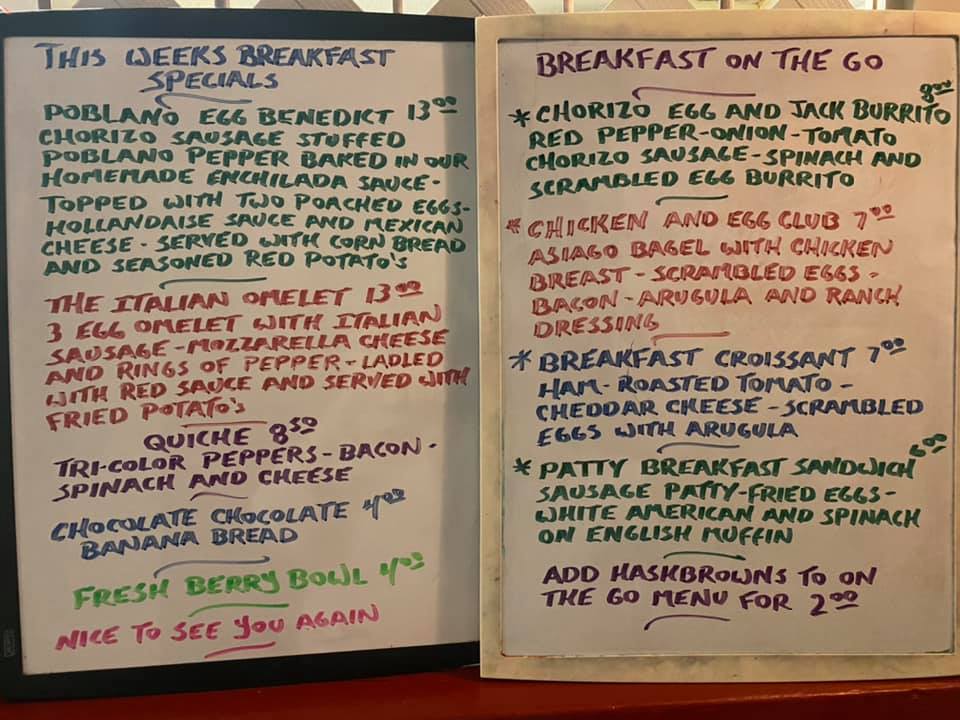 THIS WEEKS BREAKFAST
SPECIALS
POBLANO EGG BENEDICT 13.00
CHORIZO SAUSAGE STUFFED
POBLANO PEPPER BAKED IN OUR
HOMEMADE ENCHILADA SAUCE-
TOPPED WITH TWO POACHED EGGS-
HOLLANDAISE SAUCE AND MEXICAN
CHEESE - SERVED WITH CORN BREAD
AND SEASONED RED POTATO'S
THE ITALIAN OMELET 13.00
3 EGG OMELET WITH ITALIAN
SAUSAGE-MOZZARELLA CHEESE
AND RINGS OF PEPPER-LADLED
WITH RED SAUCE AND SERVED WITH
FRIED POTATO'S
QUICHE 8.50
TRI-COLOR PEPPERS-BACON-
SPINACH AND CHEESE
CHOCOLATE CHOCOLATE 4.00
BANANA BREAD
FRESH BERRY BOWL 4.00
NICE TO SEE YOU AGAIN
BREAKFAST ON THE GO
* CHORIZO EGG AND JACK BURRITO 8.00
RED PEPPER-ONION-TOMATO
CHORIZO SAUSAGE-SPINACH AND
SCRAMBLED EGG BURRITO
* CHICKEN AND EGG CLUB 7.00
ASIAGO BAGEL WITH CHICKEN
BREAST - SCRAMBLED EGGS -
BACON-ARUGULA AND RANCH
DRESSING
* BREAKFAST CROISSANT 7.00
HAM-ROASTED TOMATO-
CHEDDAR CHEESE-SCRAMBLED
EGGS WITH ARUGULA
* PATTY BREAKFAST SANDWICH 6.00
SAUSAGE PATTY-FRIED EGGS-
WHITE AMERICAN AND SPINACH
ON ENGLISH MUFFIN
ADD HASHBROWNS TO ON
THE GO MENU FOR 2.00